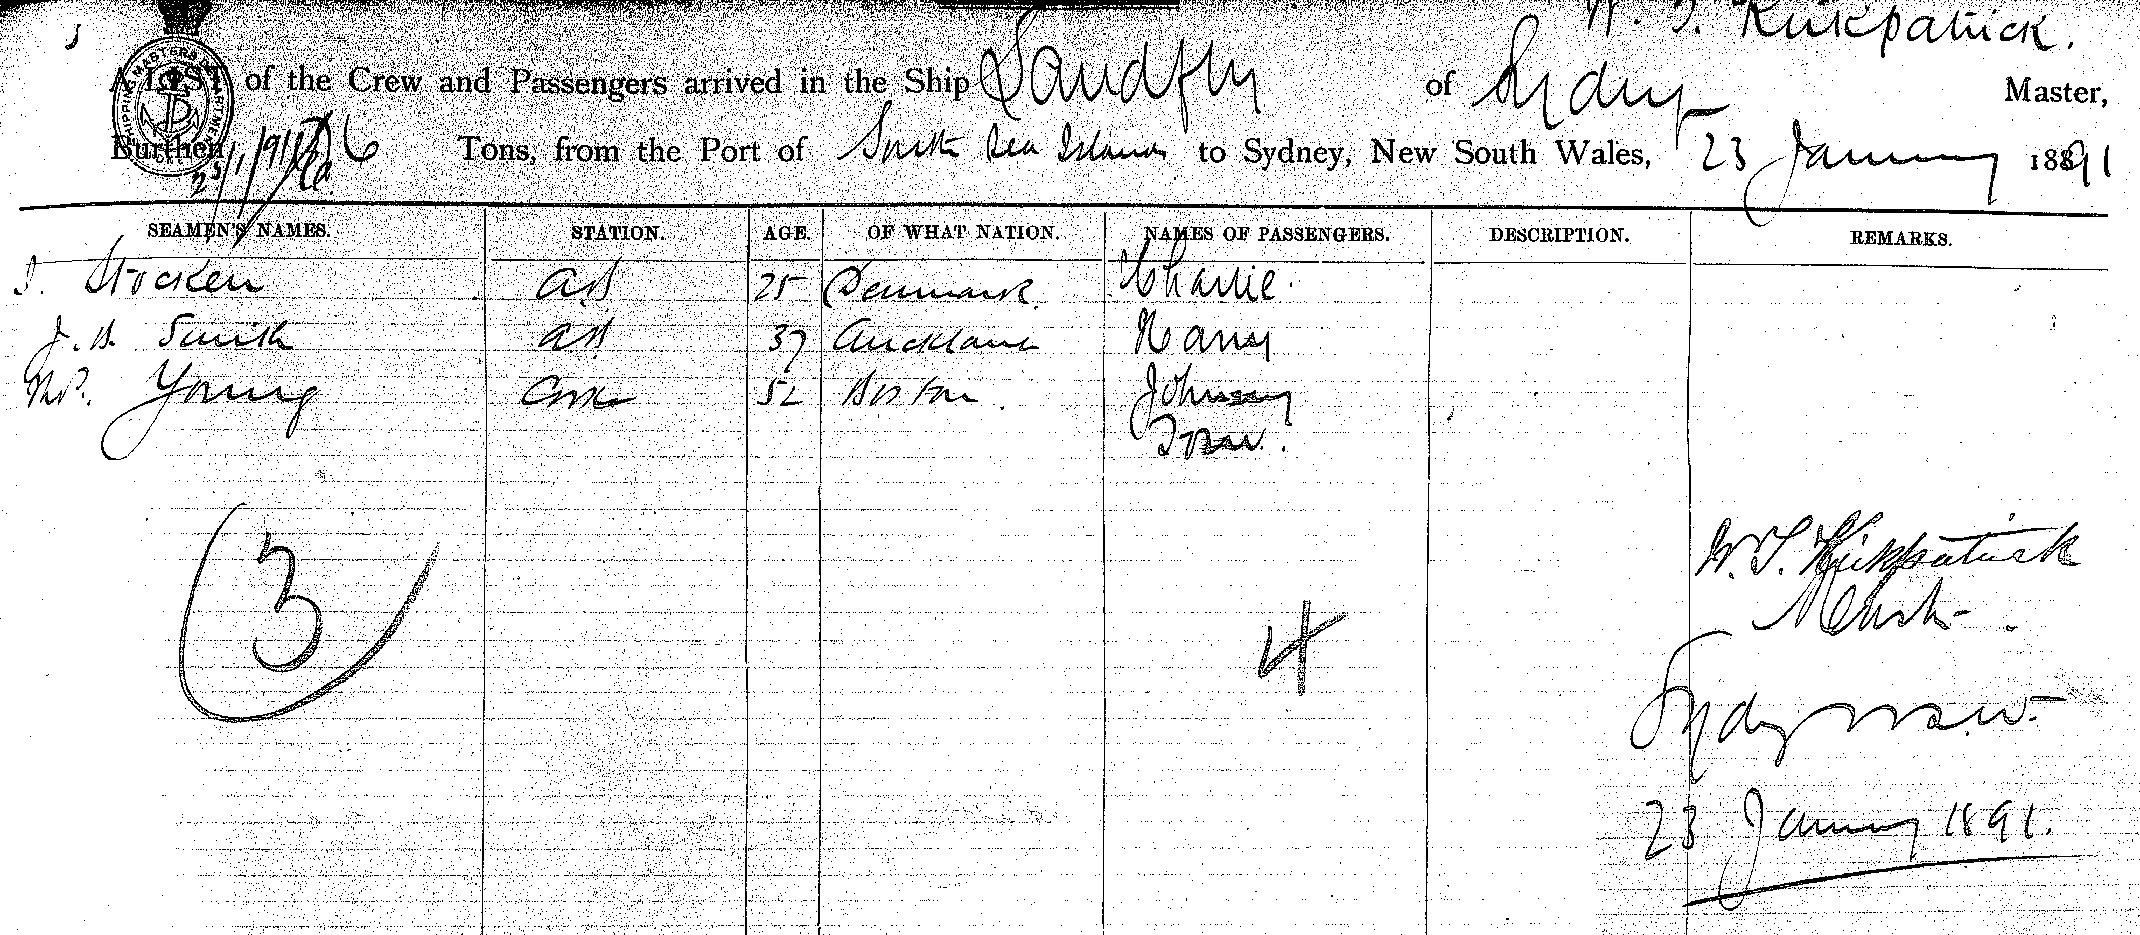 W. S. Kirkpatrick.
A LIST of the Crew and Passengers arrived in the Ship Sandfly of Sydney Master,
Burthen 76 Tons, from the Port of South Sea Islands to Sydney, New South Wales, 23 January 1891
23/1/91
SEAMEN'S NAMES. STATION. AGE. OF WHAT NATION. NAMES OF PASSENGERS. DESCRIPTION. REMARKS.
Stocken AB 25 Denmark Charlie.
J. B. Smith AB 37 Auckland Harry
Thos. Young Cook 52 Boston. Johnny
Tom.
3
4
W. S. Kirkpatrick
Master.
Sydney N.S.W.
23 January 1891.